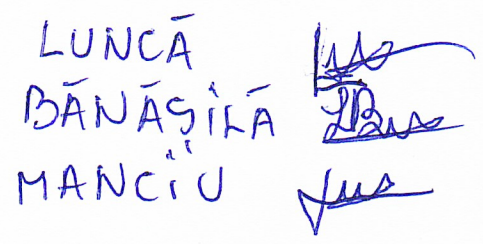 LUNCĂ
BĂNĂȘILĂ
MANCIU